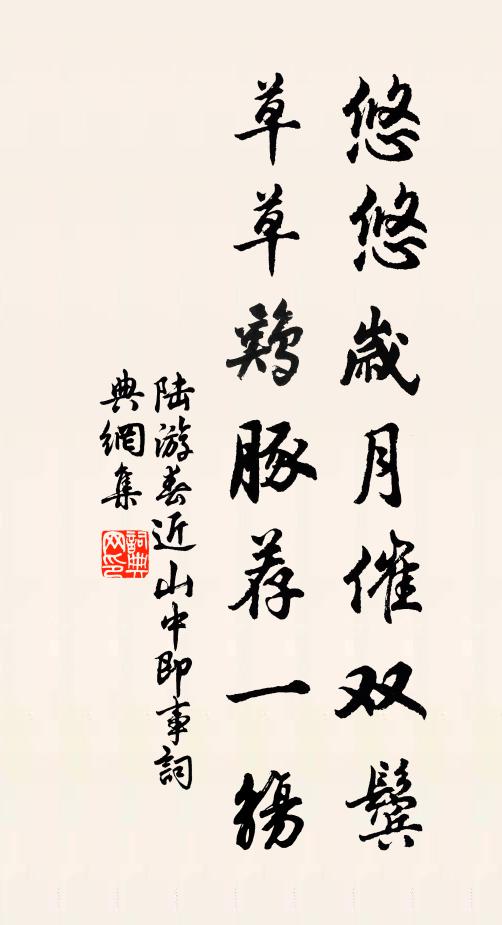 悠悠歲月催双鬓
草草鷄豚荐一觴
陆游春近山中即事詞
典網集
詞典網印